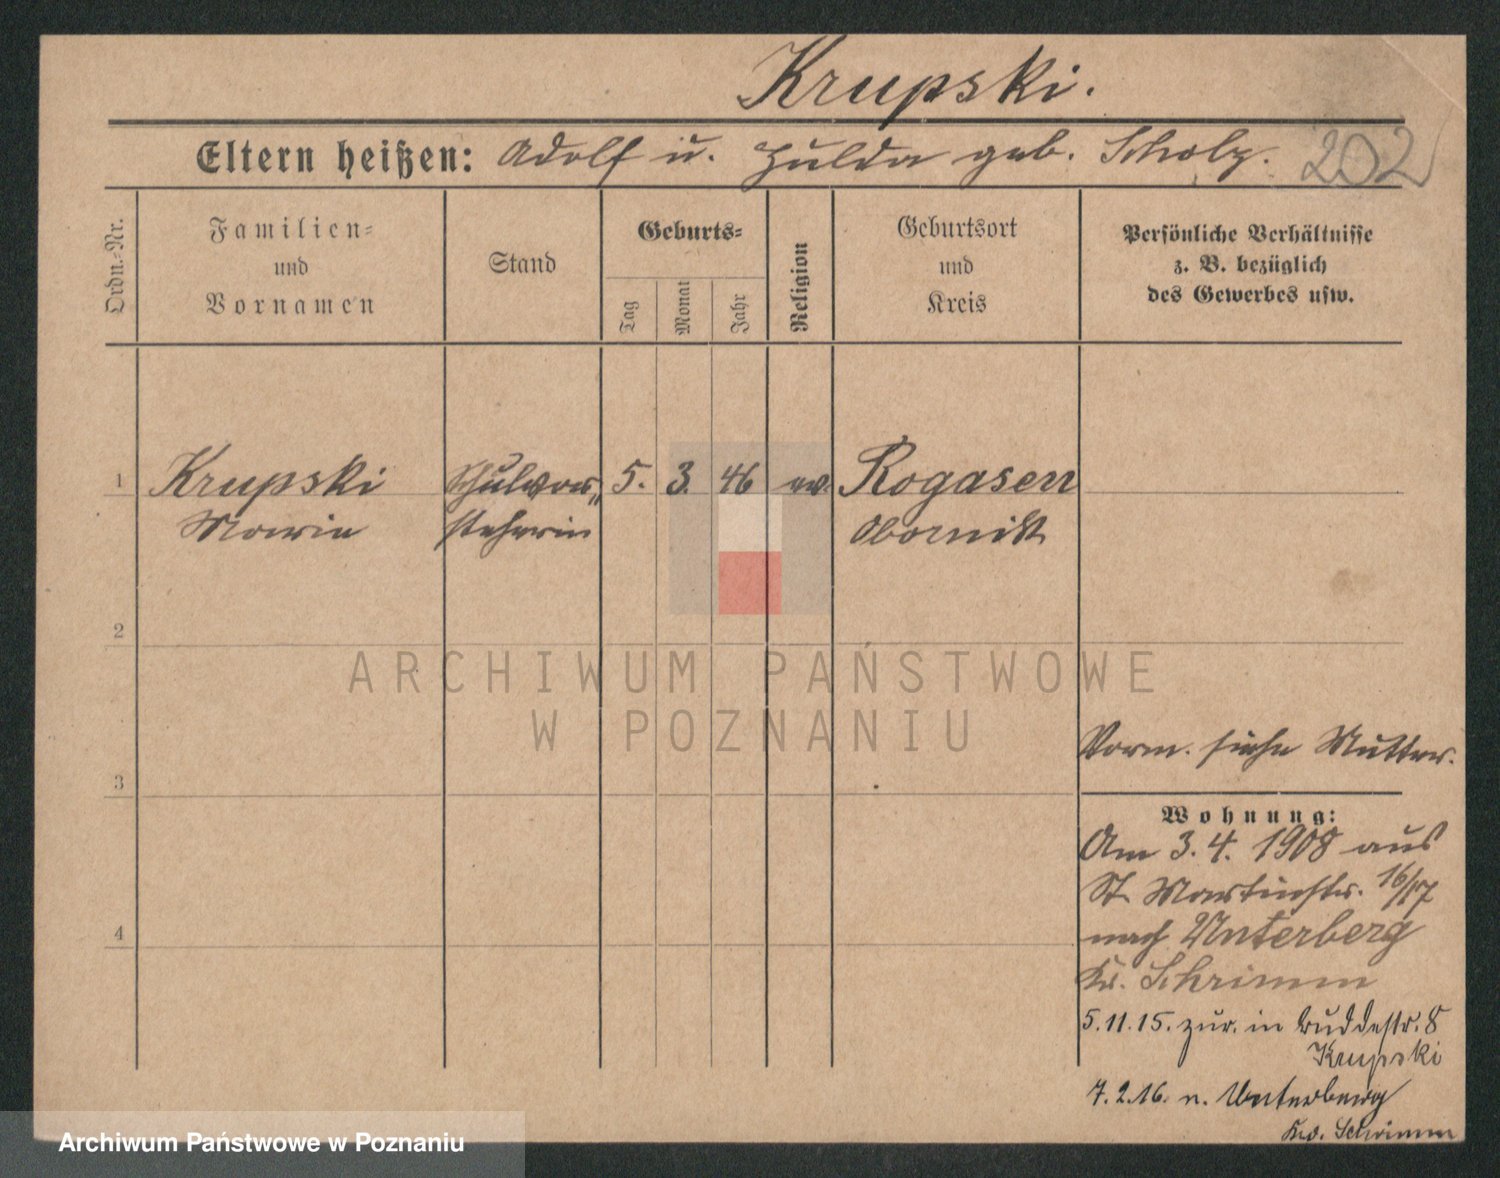 Krupski.
Eltern heißen: Adolf u. Hulda geb. Scholz. 202
Ordn.-Nr.
Familien-
und
Vornamen
Stand
Geburts-
Tag
Monat
Jahr
Religion
Geburtsort
und
Kreis
Persönliche Verhältnisse
z. B. bezüglich
des Gewerbes usw.
1 Krupski Schulvor- 5. 3. 46 ev. Rogasen
Marie steherin Obornik
2
ARCHIWUM PAŃSTWOWE
W POZNANIU
Vorm. siehe Mutter.
3
Wohnung:
Am 3.4. 1908 aus
St. Martinstr. 16/17
4
nach Unterberg
Kr. Schrimm
5.11.15. zur. in Buddestr. 8
Krupski
7.2.16. n. Unterberg
Kr. Schrimm
Archiwum Państwowe w Poznaniu